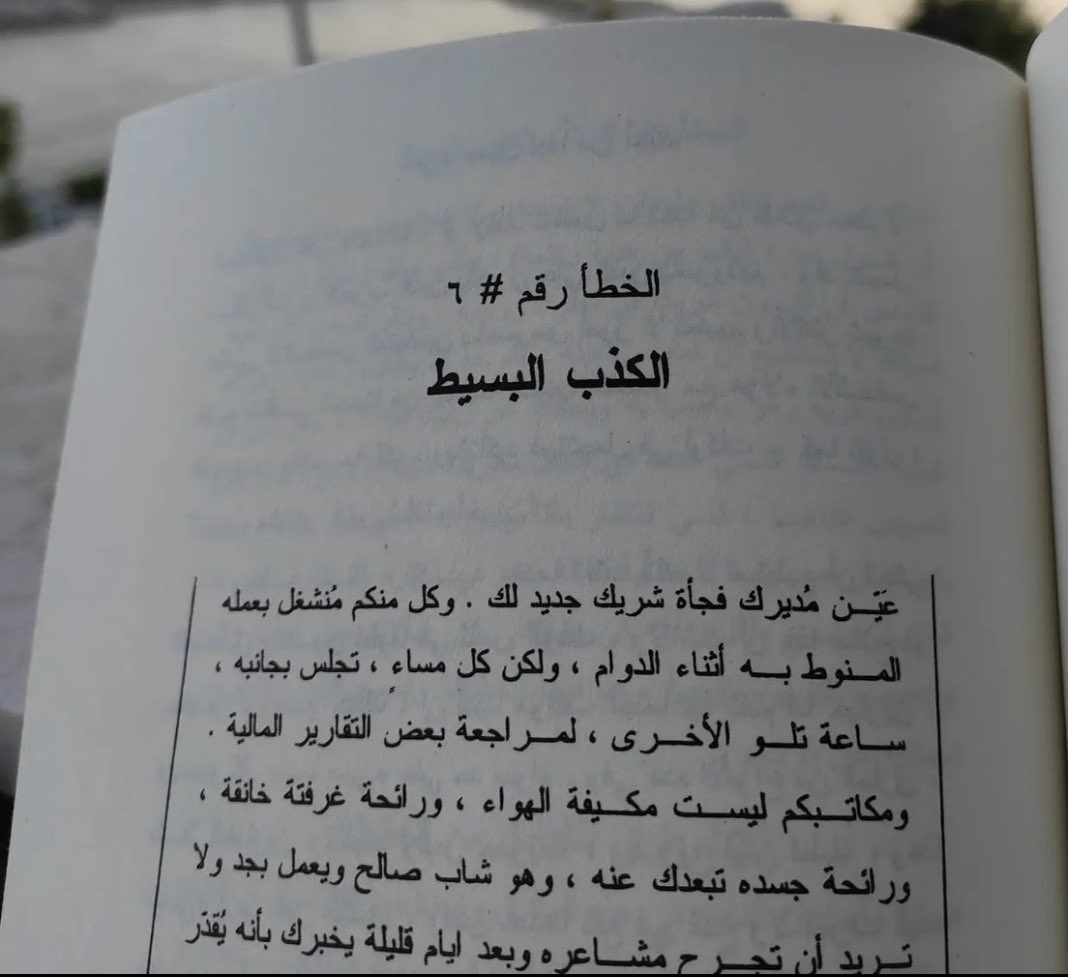 الخطأ رقم # ٦
الكذب البسيط
عَيّـن مُديرك فجأة شريك جديد لك . وكل منكم مُنشغل بعمله
المـنوط بـه أثناء الدوام ، ولكن كل مساءٍ ، تجلس بجانبه ،
سـاعة تلـو الأخـرى ، لمـراجعة بعض التقارير المالية .
ومكاتـبكم ليسـت مكـيفة الهواء ، ورائحة غرفتة خانقة ،
ورائحة جسده تبعدك عنه ، وهو شاب صالح ويعمل بجد ولا
تـريد أن تجـرح مشـاعره وبعد ايام قليلة يخبرك بأنه يُقدّر